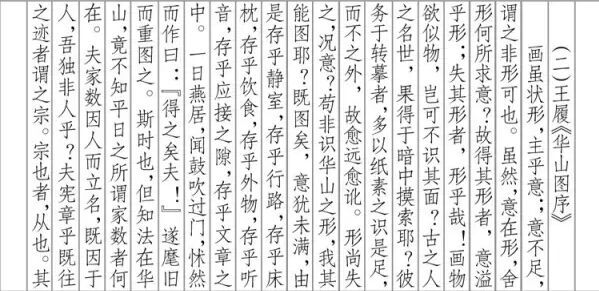 (二)王履《华山图序》
画虽状形,主乎意;意不足,
谓之非形可也。虽然,意在形,舍
形何所求意?故得其形者,意溢
乎形;失其形者,形乎哉!画物
欲似物,岂可不识其面?古之人
之名世,果得于暗中摸索耶?彼
务于转摹者,多以纸素之识是足,
而不之外,故愈远愈讹。形尚失
之,况意?苟非识华山之形,我其
能图耶?既图矣,意犹未满,由
是存乎静室,存乎行路,存乎床
枕,存乎饮食,存乎外物,存乎听
音,存乎应接之隙,存乎文章之
中。一日燕居,闻鼓吹过门,怵然
而作曰:『得之矣夫!』遂麾旧
而重图之。斯时也,但知法在华
山,竟不知平日之所谓家数者何
在。夫家数因人而立名,既因于
人,吾独非人乎?夫宪章乎既往
之迹者谓之宗。宗也者,从也。其